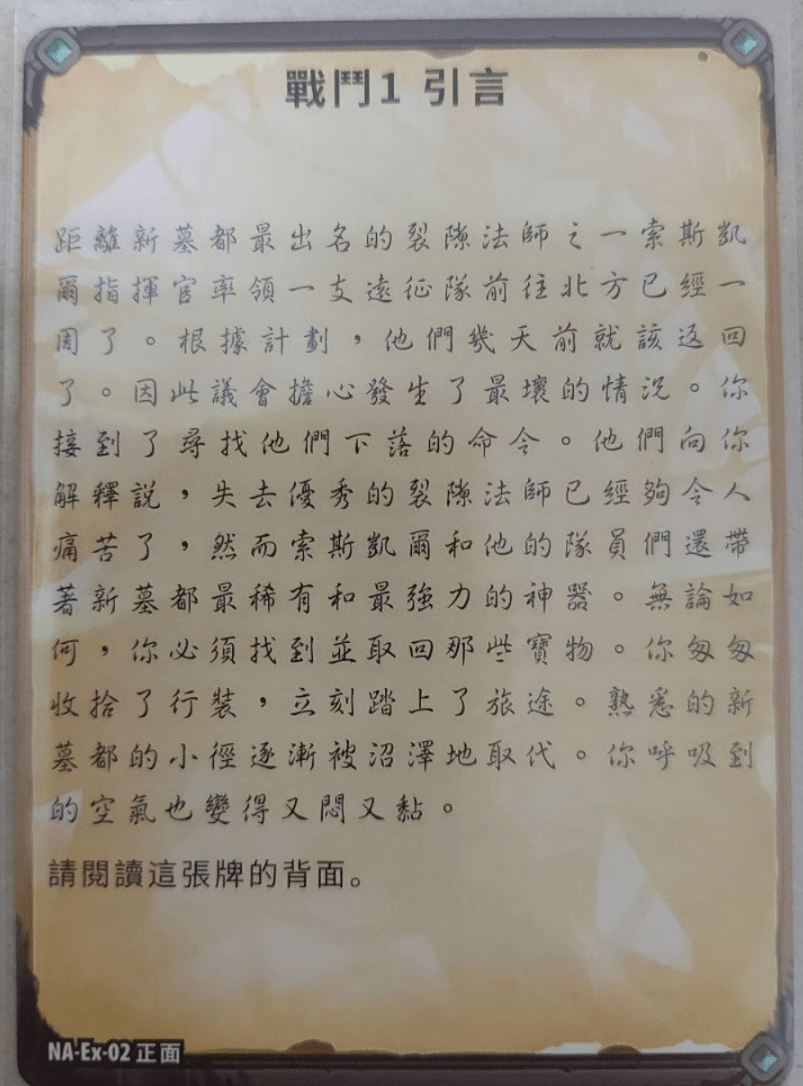 戰鬥1 引言
距離新墓都最出名的裂隙法師之一索斯凱
爾指揮官率領一支遠征隊前往北方已經一
周了。根據計劃，他們幾天前就該返回
了。因此議會擔心發生了最壞的情況。你
接到了尋找他們下落的命令。他們向你
解釋說，失去優秀的裂隙法師已經夠令人
痛苦了，然而索斯凱爾和他的隊員們還帶
著新墓都最稀有和最強力的神器。無論如
何，你必須找到並取回那些寶物。你匆匆
收拾了行裝，立刻踏上了旅途。熟悉的新
墓都的小徑逐漸被沼澤地取代。你呼吸到
的空氣也變得又悶又黏。
請閱讀這張牌的背面。
NA-Ex-02 正面